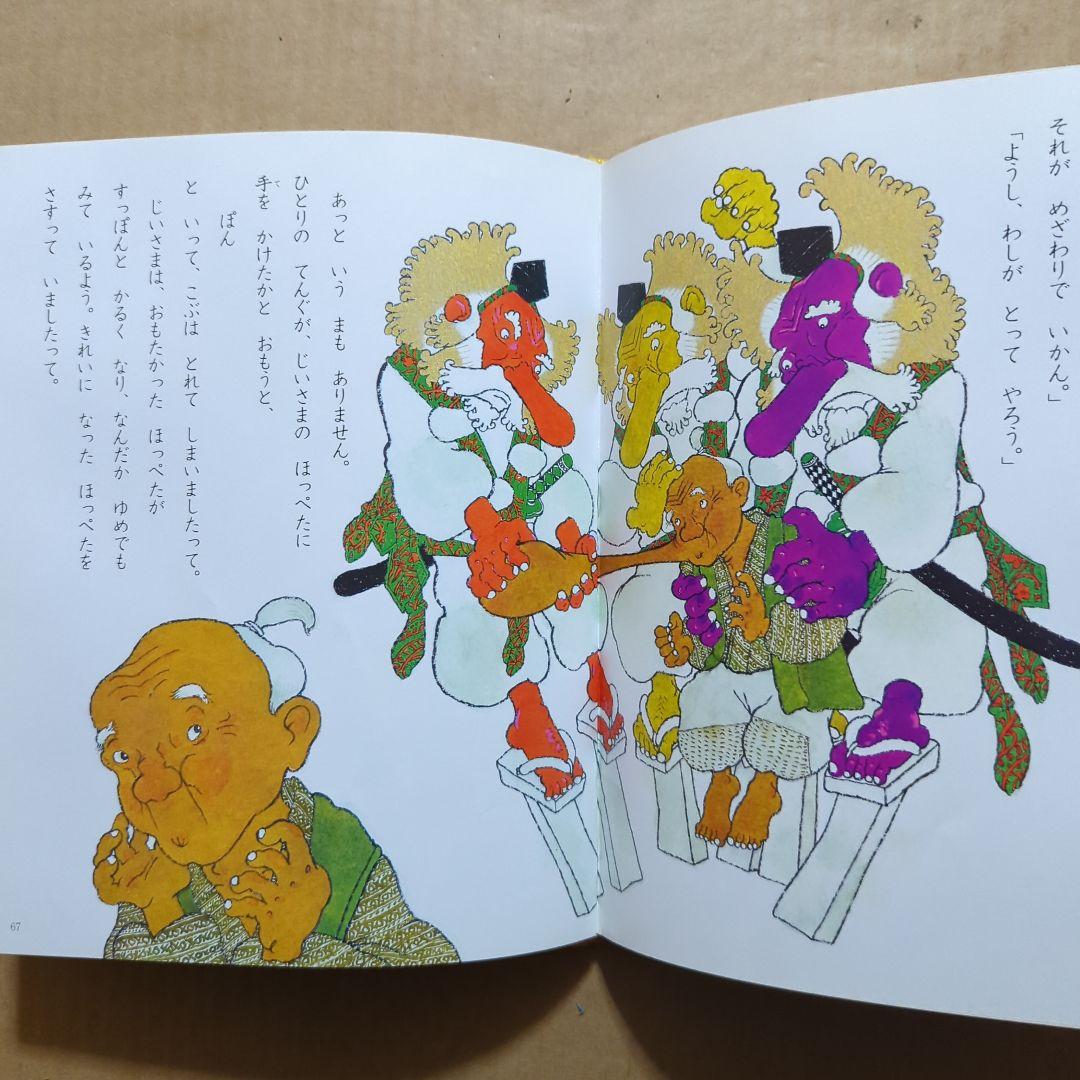 それが めざわりで いかん。」
「ようし、わしが とって やろう。」
あっと いう まも ありません。
ひとりの てんぐが、じいさまの ほっぺたに
手を かけたかと おもうと、
て
ぽん
と いって、こぶは とれて しまいましたって。
じいさまは、おもたかった ほっぺたが
すっぽんと かるく なり、なんだか ゆめでも
みて いるよう。きれいに なった ほっぺたを
さすって いましたって。
67